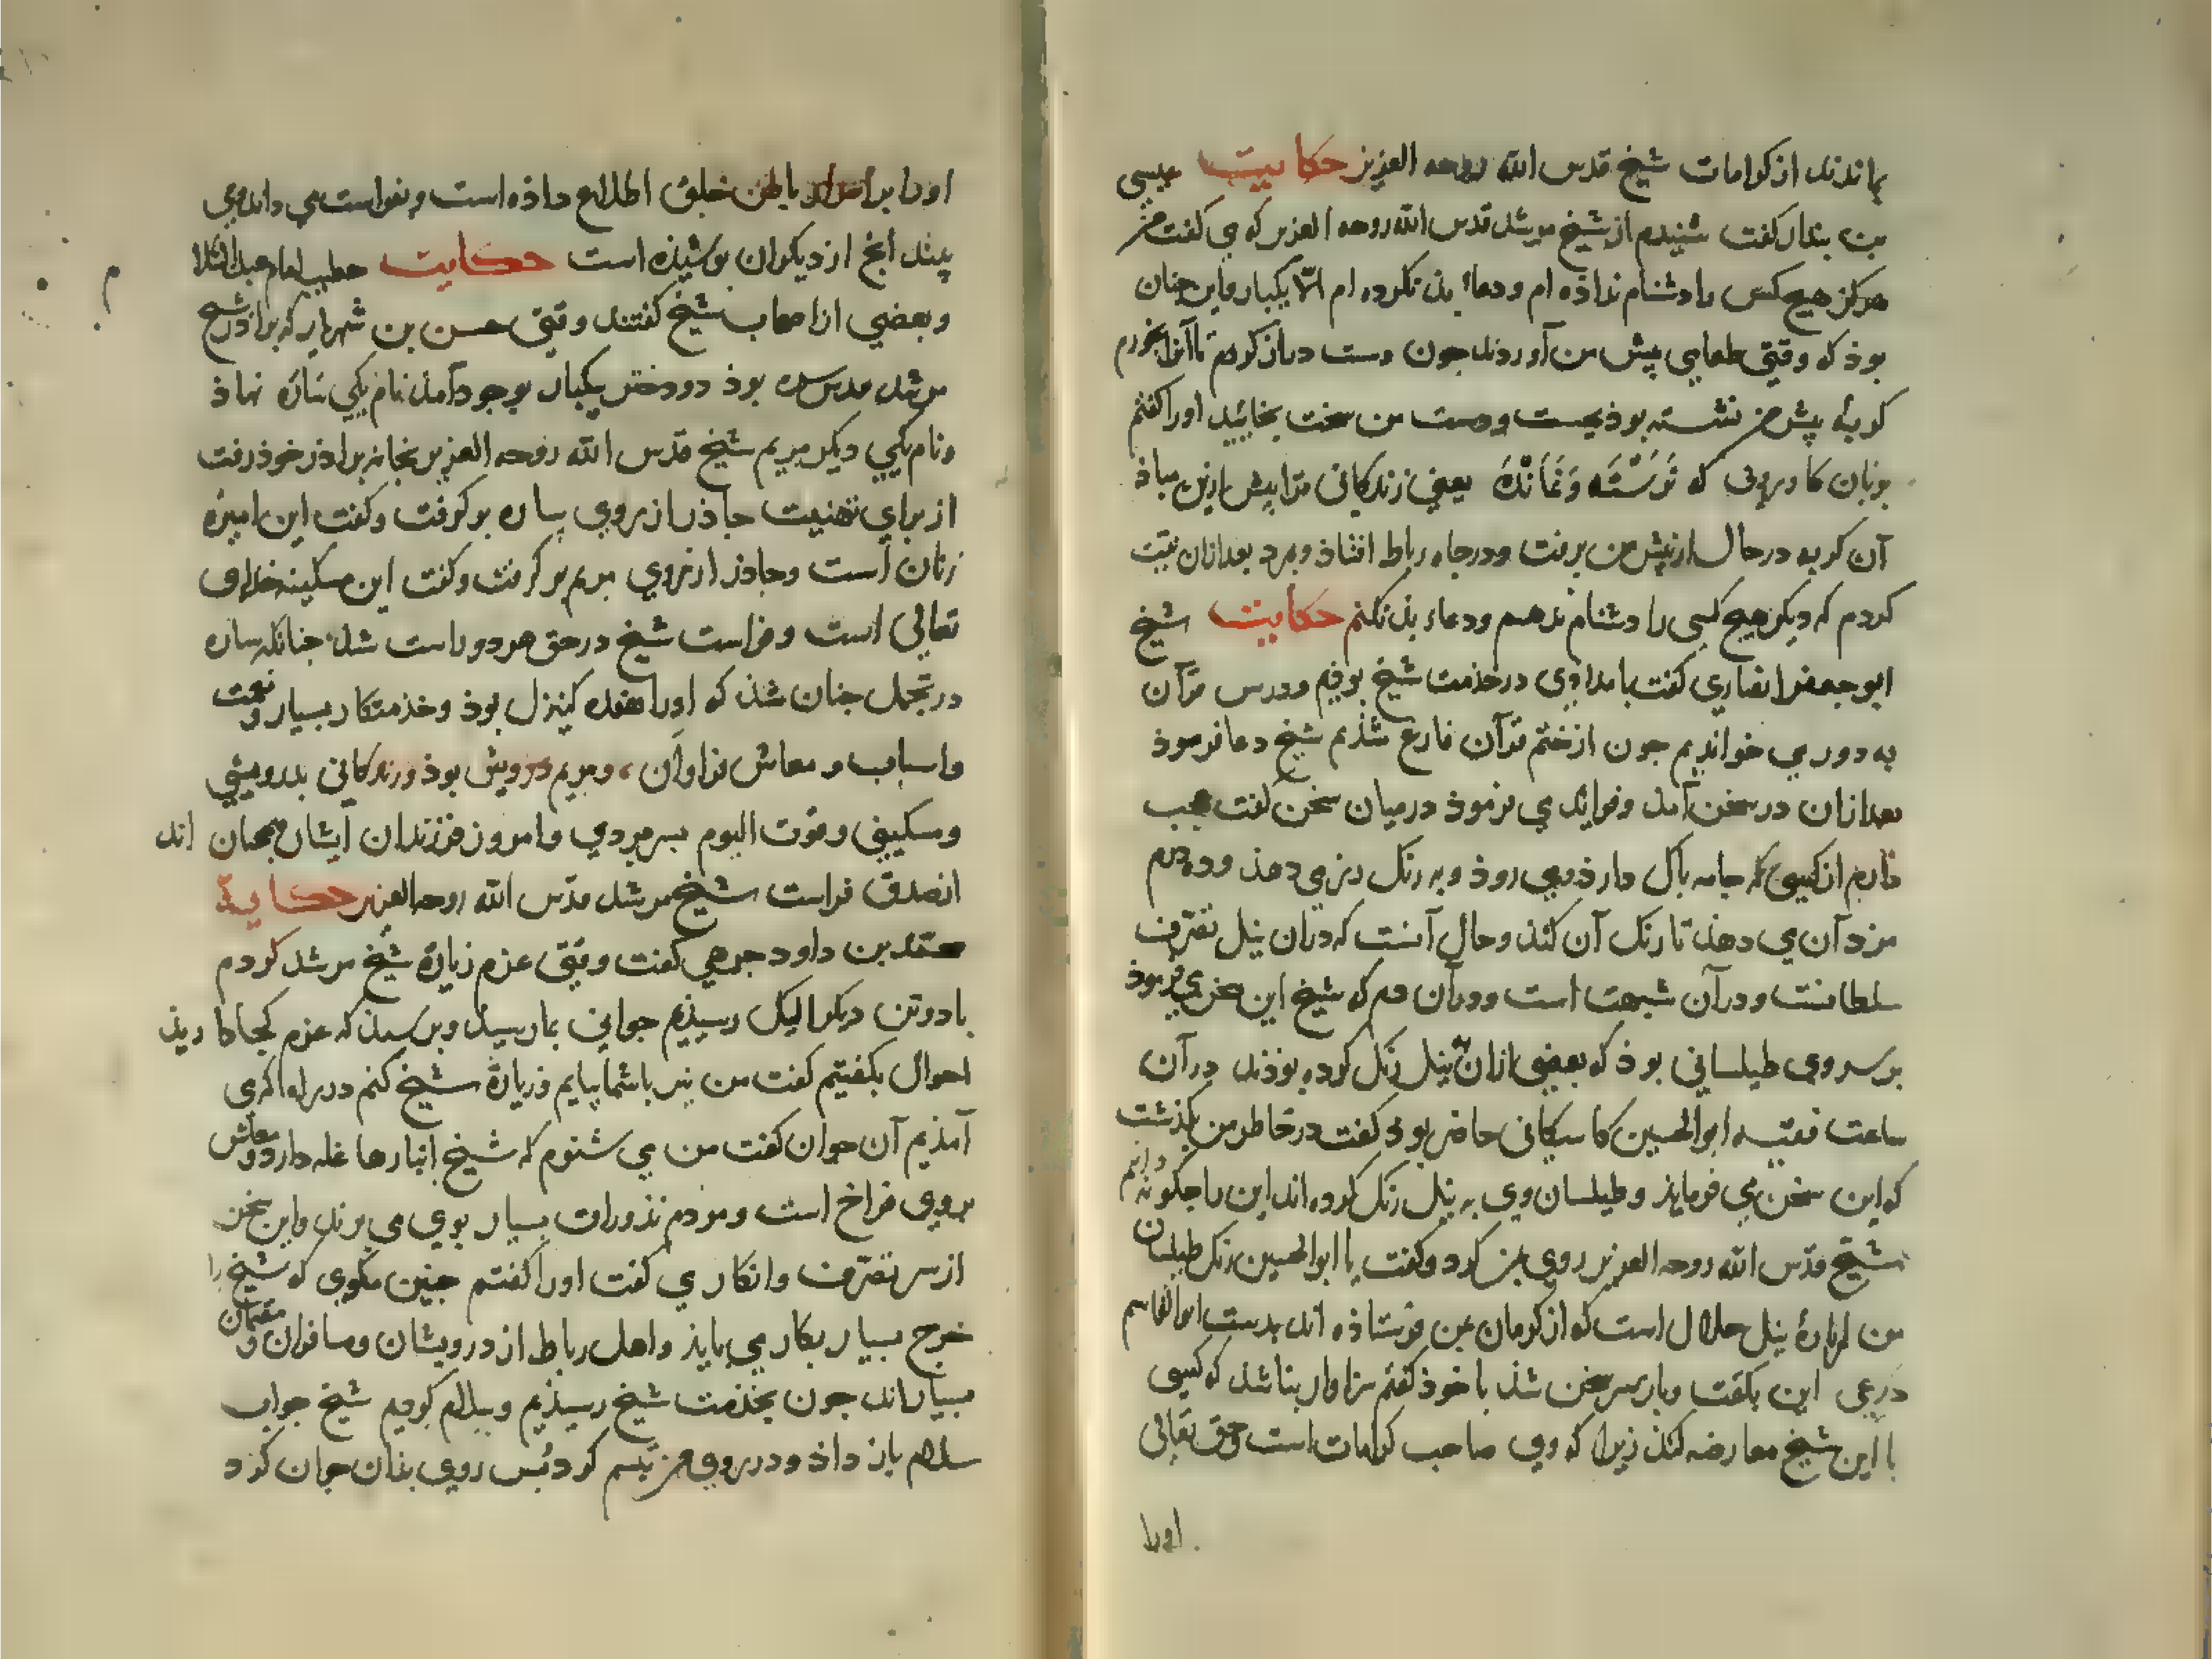 بماندند از کرامات شیخ قدس الله روحه العزیز حکایت عیسی
بن بندار کفت شنیدم از شیخ مرشد قدس الله روحه العزیز که می کفت من
هرکز هیچ کس را دشنام نداذه ام و دعاء بذ نکرده ام الّا یکبار و این جنان
بوذ که وقتی طعامی پیش من آوردند جون دست دراز کردم تا آنرا بخورم
کربۀ پیش من نشسته بوذ بجست و دست من سخت بخایید اورا کفتم
بزبان کازرونی که نوسته وغانده یعنی زندکانی ترا بیش ازین مباذ
آن کربه در حال از پیش من برفت و در جاه رباط افتاذ و بمرد بعد ازان نیت
کردم که دیکر هیچ کسی را دشنام ندهم و دعاء بذ نکنم حکایت شیخ
ابو جعفر انصاری کفت بامدادی در خدمت شیخ بوذیم و درس قرآن
به دور می خواندیم جون از ختم قرآن فارغ شذیم شیخ دعا فرموذ
بعد ازان در سخن آمذ و فواید می فرموذ در میان سخن کفت عجب
دارم از کسی که جامه باک دارذ و می روذ و به رنک رز می دهذ و ده درم
مزد آن می دهذ تا رنک آن کنذ و حال آنست که دران نیل تصرّف
سلطانست و در آن شبهت است و در آن دم که شیخ این سخن می فرموذ
بر سر وی طیلسانی بوذ که بعضی ازان به نیل رنک کرده بوذند در آن
ساعت فقیه ابو الحسین کاسکانی حاضر بوذ کفت در خاطر من بکذشت
که این سخن می فرمایذ و طیلسان وی به نیل رنک کرده اند این را جکونه دانم
شیخ قدّس الله روحه العزیز روی بمن کرد و کفت یا ابو الحسین رنک طیلسان
من از بارۀ نیل حلال است که از کرمان بمن فرستاذه اند بدست ابو القاسم
درعی این بکفت و باز سر سخن شذ با خوذ کفتم سزاوار نباشد که کسی
با این شیخ معارضه کنذ زیرا که وی صاحب کرامات است و حق تعالی
اورا
اورا بر اسرار باطن خلق اطلاع داذه است و بفراست می داند و می
بیند آنج از دیکران بوشیذه است حکایت خطیب امام عبد السلام
و بعضی از اصحاب شیخ کفتند وقتی حسن بن شهریار که براذر شیخ
مرشد قدس سره بوذ دو دختر بیکبار بوجود آمذ نام یکی ساره نهاذ
و نام یکی دیکر مریم شیخ قدس الله روحه العزیز بخانه براذر خوذ رفت
از برای تهنیت جاذر از روی ساره بر کرفت و کفت این امیرۀ
زنان است و جاذر از روی مریم بر کرفت و کفت این مسکینه خدای
تعالی است و فراست شیخ در حق هر دو راست شذ جنانکه ساره
در تجمل جنان شذ که اورا هفده کنیزک بوذ و خذمتکار بسیار و نعمت
و اسباب و معاش فراوان، و مریم درویش بوذ و زندکانی بدرویشی
و مسکینی و قوت الیوم بسر بردی و امروز فرزندان ایشان همجنان اند
از صدق فراست شیخ مرشد قدّس الله روحه العزیز حکایة
محمد بن داود جرهی کفت وقتی عزم زیارة شیخ مرشد کردم
با دو تن دیکر رسیذیم جوانی بما رسیذ و برسیذ که عزم کجا دارید
احوال بکفتیم کفت من نیز با شما بیایم و زیارة شیخ کنم در راه
آمذیم آن جوان کفت من می شنوم که شیخ انبارها غله دارد و معاش
بر وی فراخ است و مردم نذورات بسیار بوی می برند و این سخن
از سر تصرّف و انکار می کفت اورا کفتم جنین مکوی که شیخ را
خرج بسیار بکار می بایذ و اهل رباط از درویشان و مسافران و مقیمان
بسیاراند جون بخذمت شیخ رسیذیم و سلام کردیم شیخ جواب
سلام باز داذ و در روی من تبسم کرد بس روی بذان جوان کرد